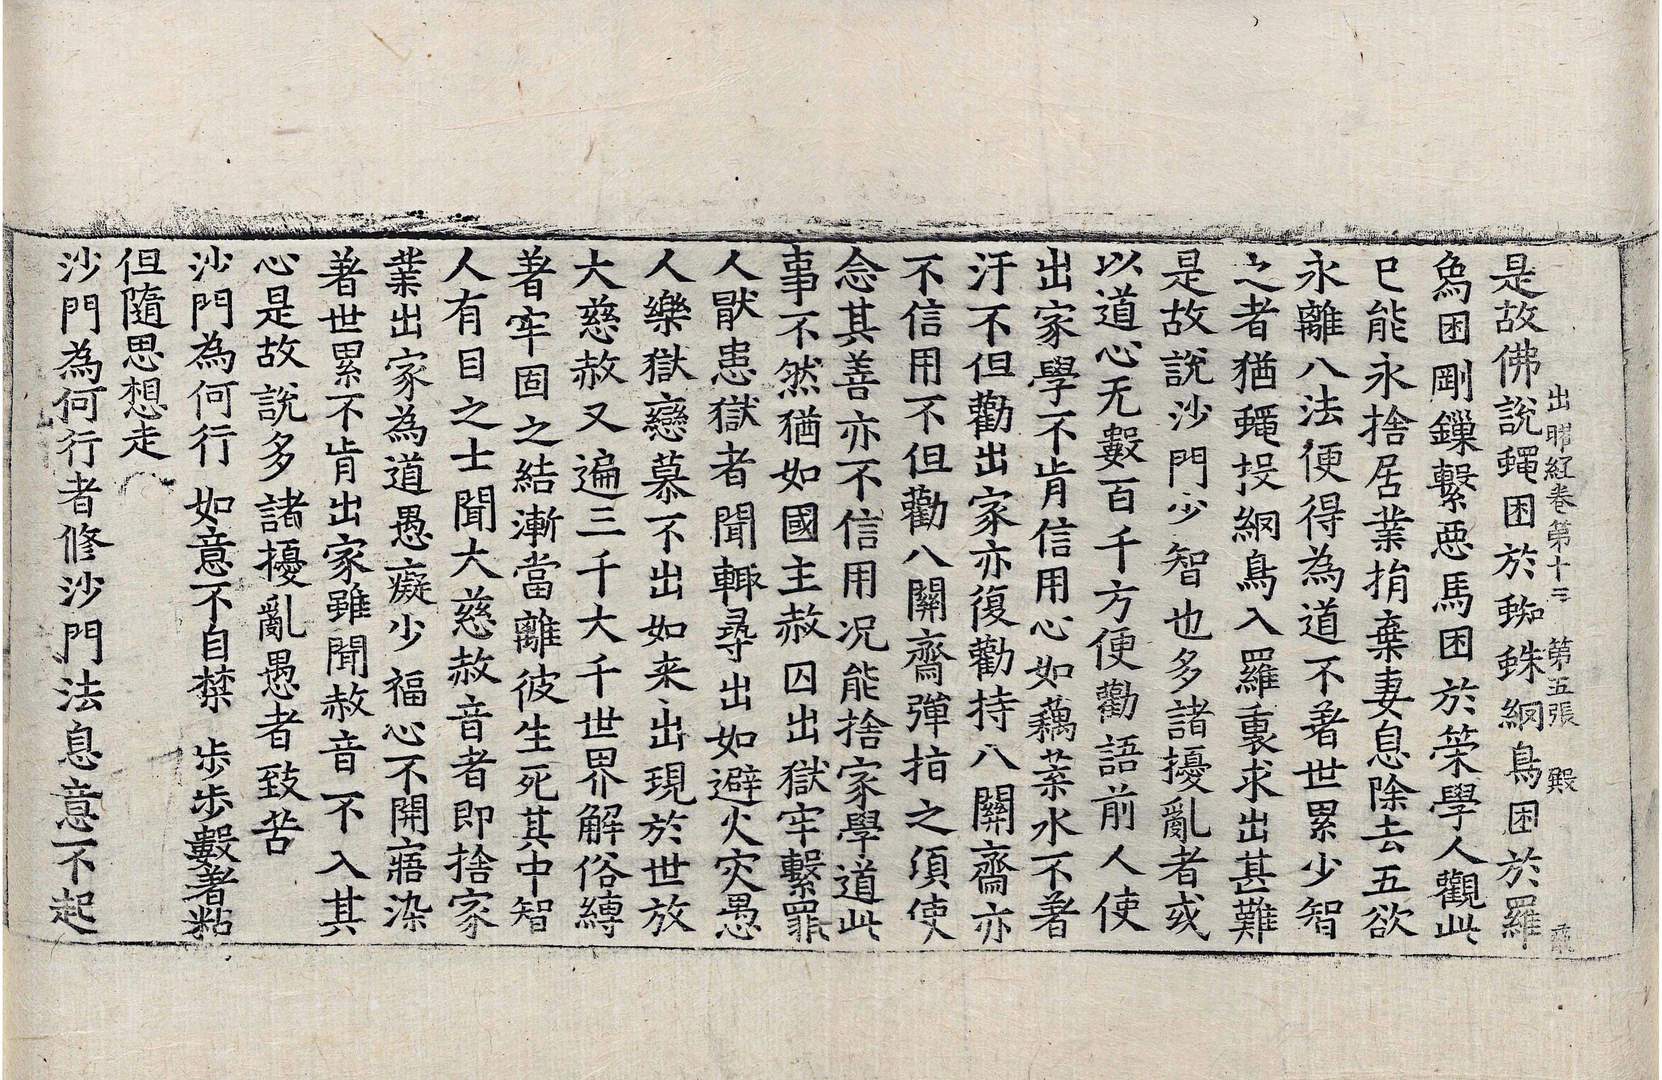 出曜經卷第十三 第五張 殿
是故佛說蠅困於蜘蛛網鳥困於羅
爲困剛鏁繫惡馬困於策學人觀此
已能永捨居業捐棄妻息除去五欲
永離八法便得為道不著世累少智
之者猶蠅投網鳥入羅裏求出甚難
是故說沙門少智也多諸擾亂者或
以道心无數百千方便勸語前人使
出家學不肯信用心如藕葉水不著
汙不但勸出家亦復勸持八關齋亦
不信用不但勸八關齋彈指之須使
念其善亦不信用况能捨家學道此
事不然猶如國主赦囚出獄牢繫罪
人猒患獄者聞輙尋出如避火灾愚
人樂獄戀慕不出如来出現於世放
大慈赦又遍三千大千世界解俗縛
著牢固之結漸當離彼生死其中智
人有目之士聞大慈赦音者即捨家
業出家為道愚癡少福心不開寤染
著世累不肯出家雖聞赦音不入其
心是故說多諸擾亂愚者致苦
沙門為何行 如意不自禁 步步數著粘
但隨思想走
沙門為何行者修沙門法息意不起